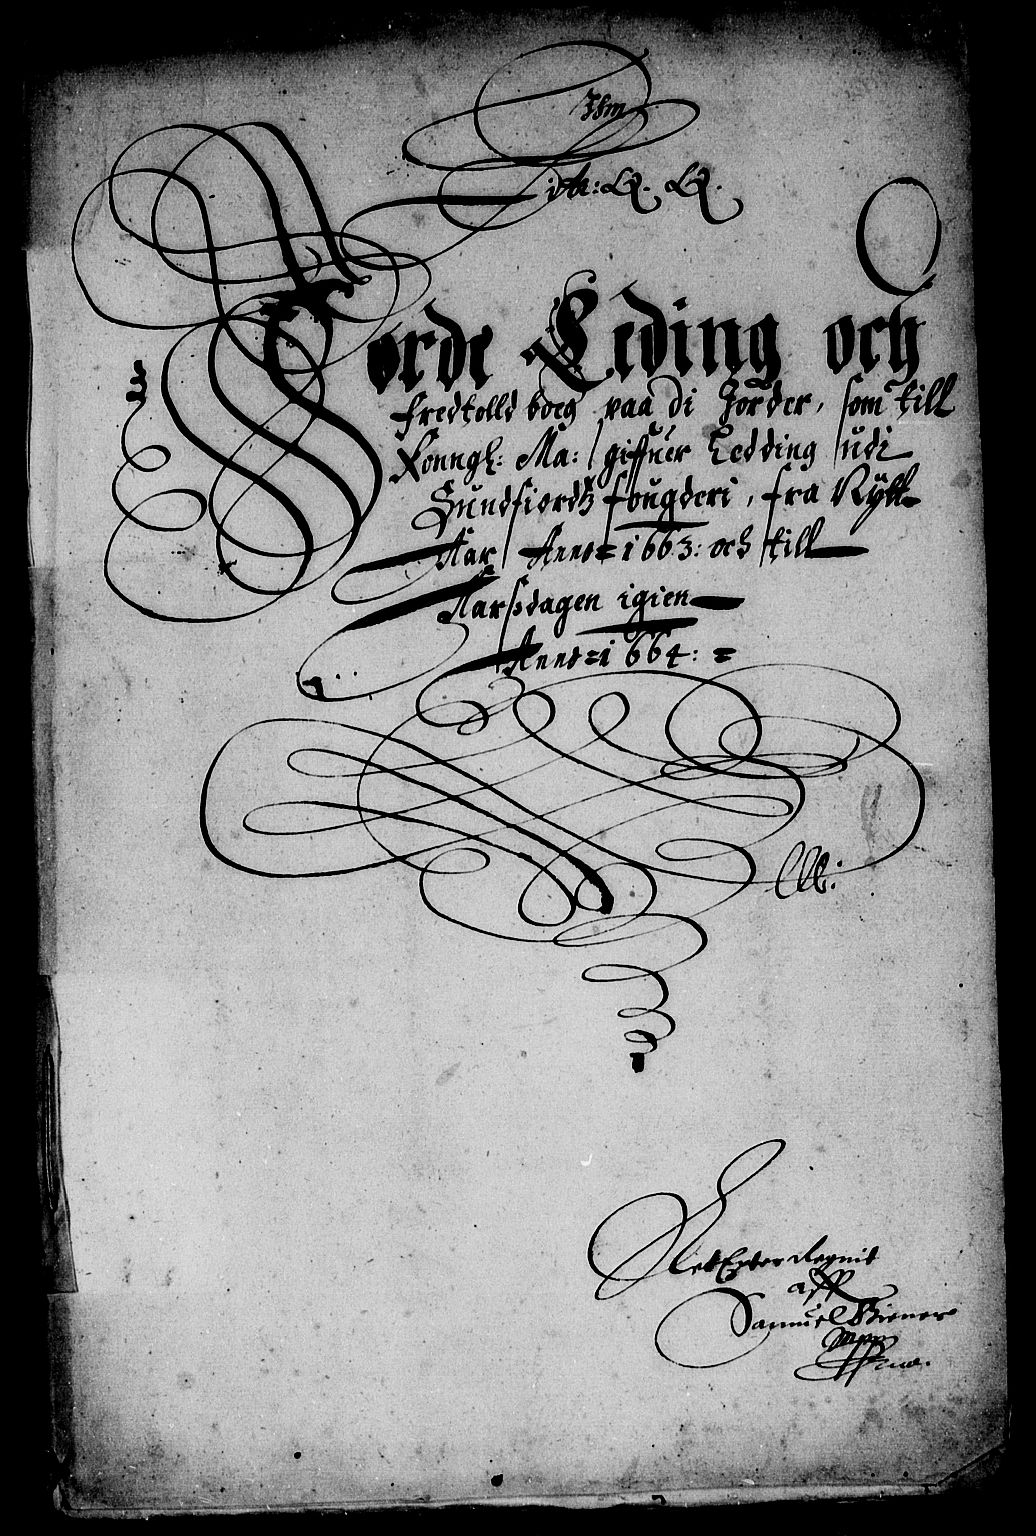 Jorde Leding och
fredtolld boeg paa di Jorder, som till
Konngl: Ma: giffuer Ledding udi
Sundfiordtz fougderi, fra Nÿtt
Aar Anno = 1663: och till
Aarsdagen igien
Anno = 1664: =
Ret Exter Regnit
aff
Samuel